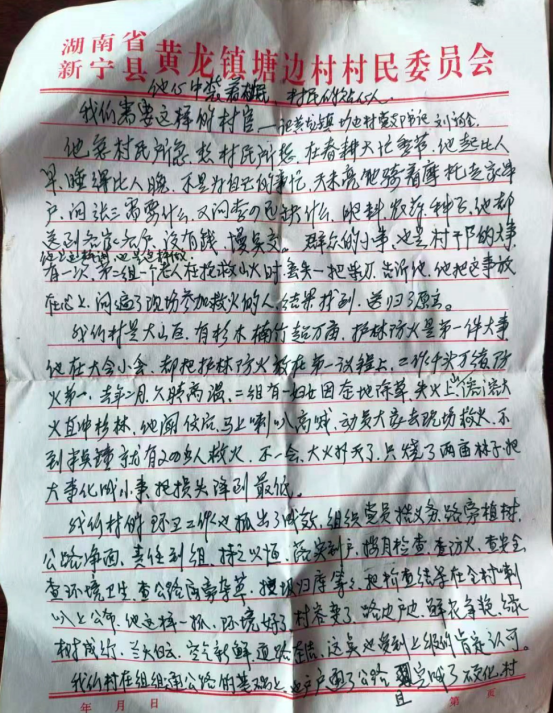 湖南省
新宁县 黄龙镇塘边村村民委员会
他心中装着村民，村民
我们需要这样的村官—记黄龙镇塘边村党支书记
他急村民所急，想村民所想，在春耕大忙季节，他起比人
早，睡得比人晚，不是为自己的事忙，天未亮他骑着摩托走家串
户，问张三需要什么，又问李四还缺什么，肥料、农药、种子，他都
送到各家各户，没有钱，慢点交。群众的小事，也是村干部的大事
他是这样讲，也是这样做。
有一次，第一组一个老人在抢救山火时，丢失一把柴刀，告诉他，他把这事放
在心上，问遍了现场参加救火的人，结果找到，送归了原主。
我们村是大山区，有杉木楠竹超万亩，护林防火是第一件大事
他在大会小会，都把护林防火放在第一议程上，工作千头万绪防
火第一，去年二月，久晴高温，二组有一妇女因在地除草，失火上山
火直冲杉林，他闻讯后，马上喇叭高喊，动员大家去现场救火，不
到半点钟就有200多人救火，不一会，大火扑灭了，只烧了两亩林子，把
大事化成小事，把损失降到最低。
我们村的环卫工作又抓出了成效，组织党员搞义务，路旁植树，
公路净面，责任到组，持之以恒，落实到户，按月检查，查防火，查安全
查环境卫生，查公路两旁杂草，垃圾归库等等，把检查结果在全村喇
叭上公布，他这样一抓，环境好了，村容变了，路边户边，鲜花争艳，绿
树成行，兰天白云，空气新鲜，道路整洁，这点也受到上级的肯定认可。
我们村在组组通公路的基础上，户户通了公路，且 了硬化，村
年 月 日 第 页